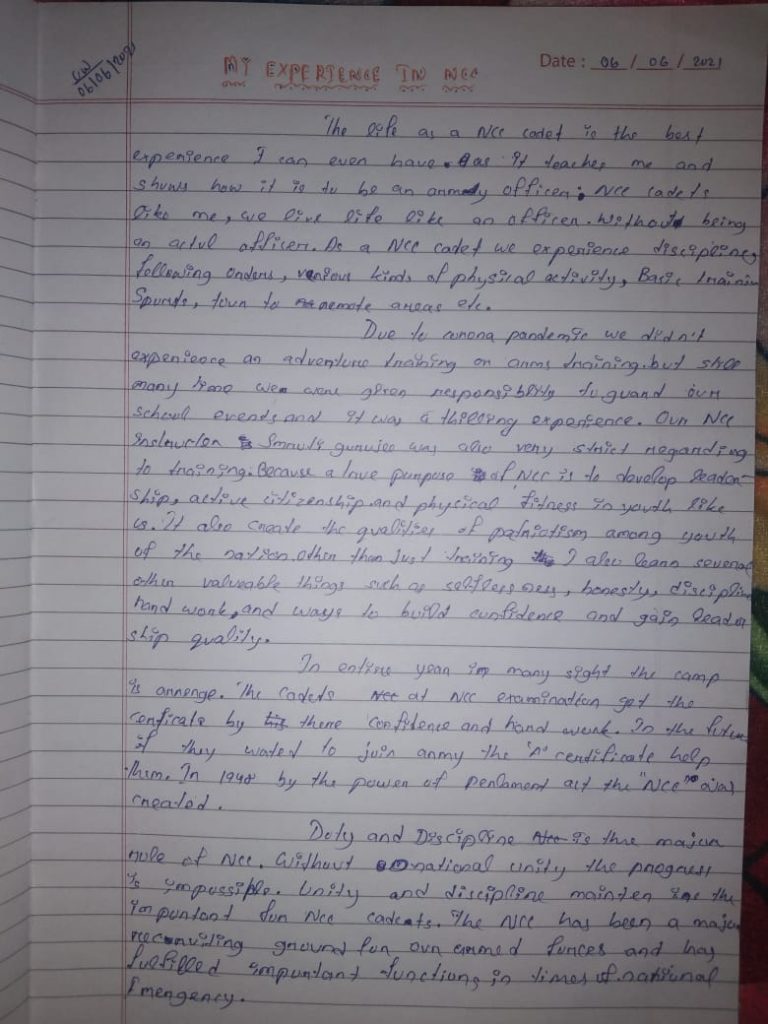 CW
06/06/2021
MY EXPERIENCE IN NCC
Date : 06 / 06 / 2021
The life as a NCC cadet is the best
experience I can even have. as it teaches me and
shows how it is to be an army officer; NCC cadets
like me, we live life like an officer. without being
an actul officer. As a NCC cadet we experience discipline,
following orders, various kinds of physical activity, Basic trainin
Sports, tour to remote areas etc.
Due to corona pandemic we didn't
experience an adventure training or arms training. but still
many time we were given responsiblity to guard our
school events and it was a thilling experience. Our NCC
Instructor gurujee was also very strict regarding
to training. Because a true purpose of NCC is to develop leader-
ship, active citizenship and physical fitness in youth like
us. It also create the qualities of patriotism among youth
of the nation. other than just training I also learn several
other valueable things such as selflessness, honesty, disciplin
hard work, and ways to build confidence and gain leader
ship quality.
In entire year in many sight the camp
is arrenge. The cadets at NCC examination get the
cerficate by there confidence and hard work. In the future
if they wated to join army the "A" certificate help
them. In 1948 by the power of perlament act the "NCC" was
created.
Doty and Discipline is the major
role of NCC. Without national unity the progress
is impossible. Unity and discipline mainten the
important for NCC cadeats. The NCC has been a major
recruiting ground for our armed forces and has
fulfilled important functions in times of national
Emergency.